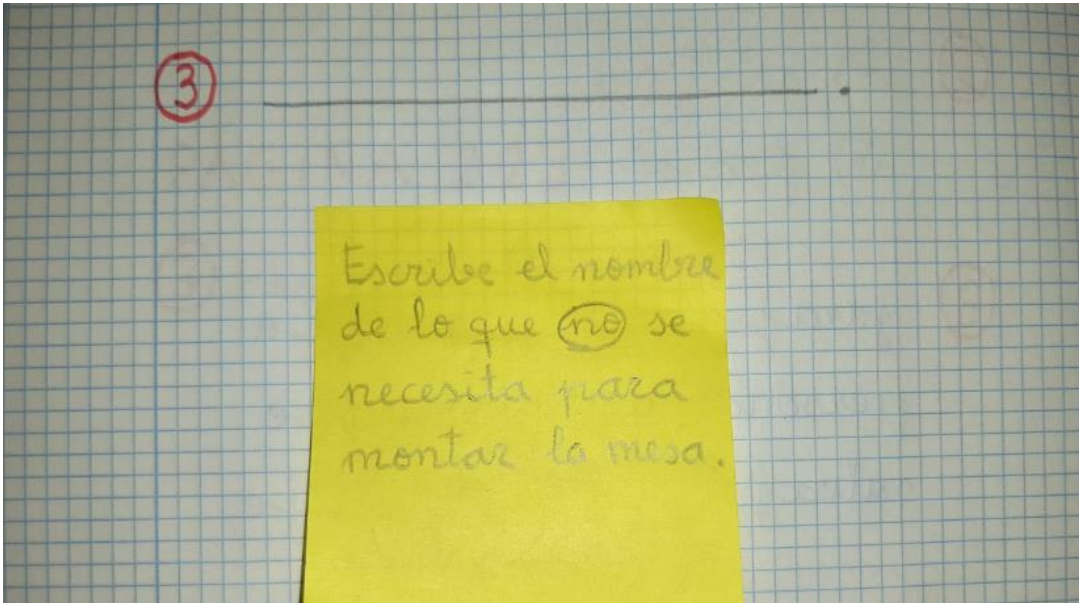 3 .
Escribe el nombre
de lo que no se
necesita para
montar la mesa.